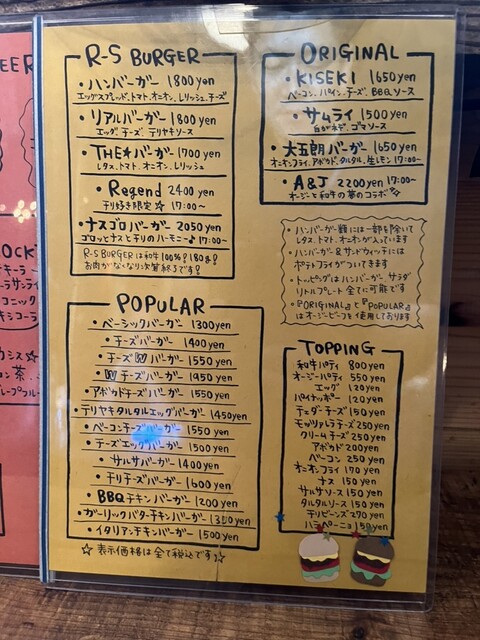 R-S BURGER
・ハンバーガー 1800yen
エッグスプレッド、トマト、オニオン、レリッシュ、チーズ
・リアルバーガー 1800yen
エッグ、チーズ、テリヤキソース
・THE★バーガー 1700yen
レタス、トマト、オニオン、レリッシュ
・Regend 2400yen
チリ好き限定☆ 17:00〜
・ナスゴロバーガー 2050yen
ゴロッとナスとチリのハーモニー♪ 17:00〜
R-S BURGERは和牛100%!180g!
お肉がなくなり次第終了です!
ORIGINAL
・KISEKI 1650yen
ベーコン、パイン、チーズ、BBQソース
・サムライ 1500yen
白髪ネギ、ゴマソース
・大五朗バーガー 1650yen
オニオンフライ、アボカド、タルタル、生レモン 17:00〜
・A&J 2200yen 17:00〜
オージーと和牛の夢のコラボ
・ハンバーガー類には一部を除いて
レタス、トマト、オニオンが入っています
・ハンバーガー&サンドウィッチには
ポテトフライがついてきます
・トッピングはハンバーガー、サラダ
リトルプレート全てに可能です
・『ORIGINAL』と『POPULAR』
はオージービーフを使用しております
POPULAR
・ベーシックバーガー 1300yen
・チーズバーガー 1400yen
・チーズWバーガー 1550yen
・Wチーズバーガー 1950yen
・アボカドチーズバーガー 1550yen
・テリヤキタルタルエッグバーガー 1450yen
・ベーコンチーズバーガー 1550yen
・チーズエッグバーガー 1500yen
・サルサバーガー 1400yen
・チリチーズバーガー 1600yen
・BBQチキンバーガー 1200yen
・ガーリックバターチキンバーガー 1300yen
・イタリアンチキンバーガー 1500yen
☆表示価格は全て税込です☆
TOPPING
和牛パティ 800yen
オージーパティ 550yen
エッグ 120yen
パイナップル 120yen
チェダーチーズ 150yen
モッツァレラチーズ 250yen
クリームチーズ 250yen
アボカド 200yen
ベーコン 250yen
オニオンフライ 170yen
ナス 150yen
サルサソース 150yen
タルタルソース 150yen
チリビーンズ 270yen
ハラペーニョ 150yen